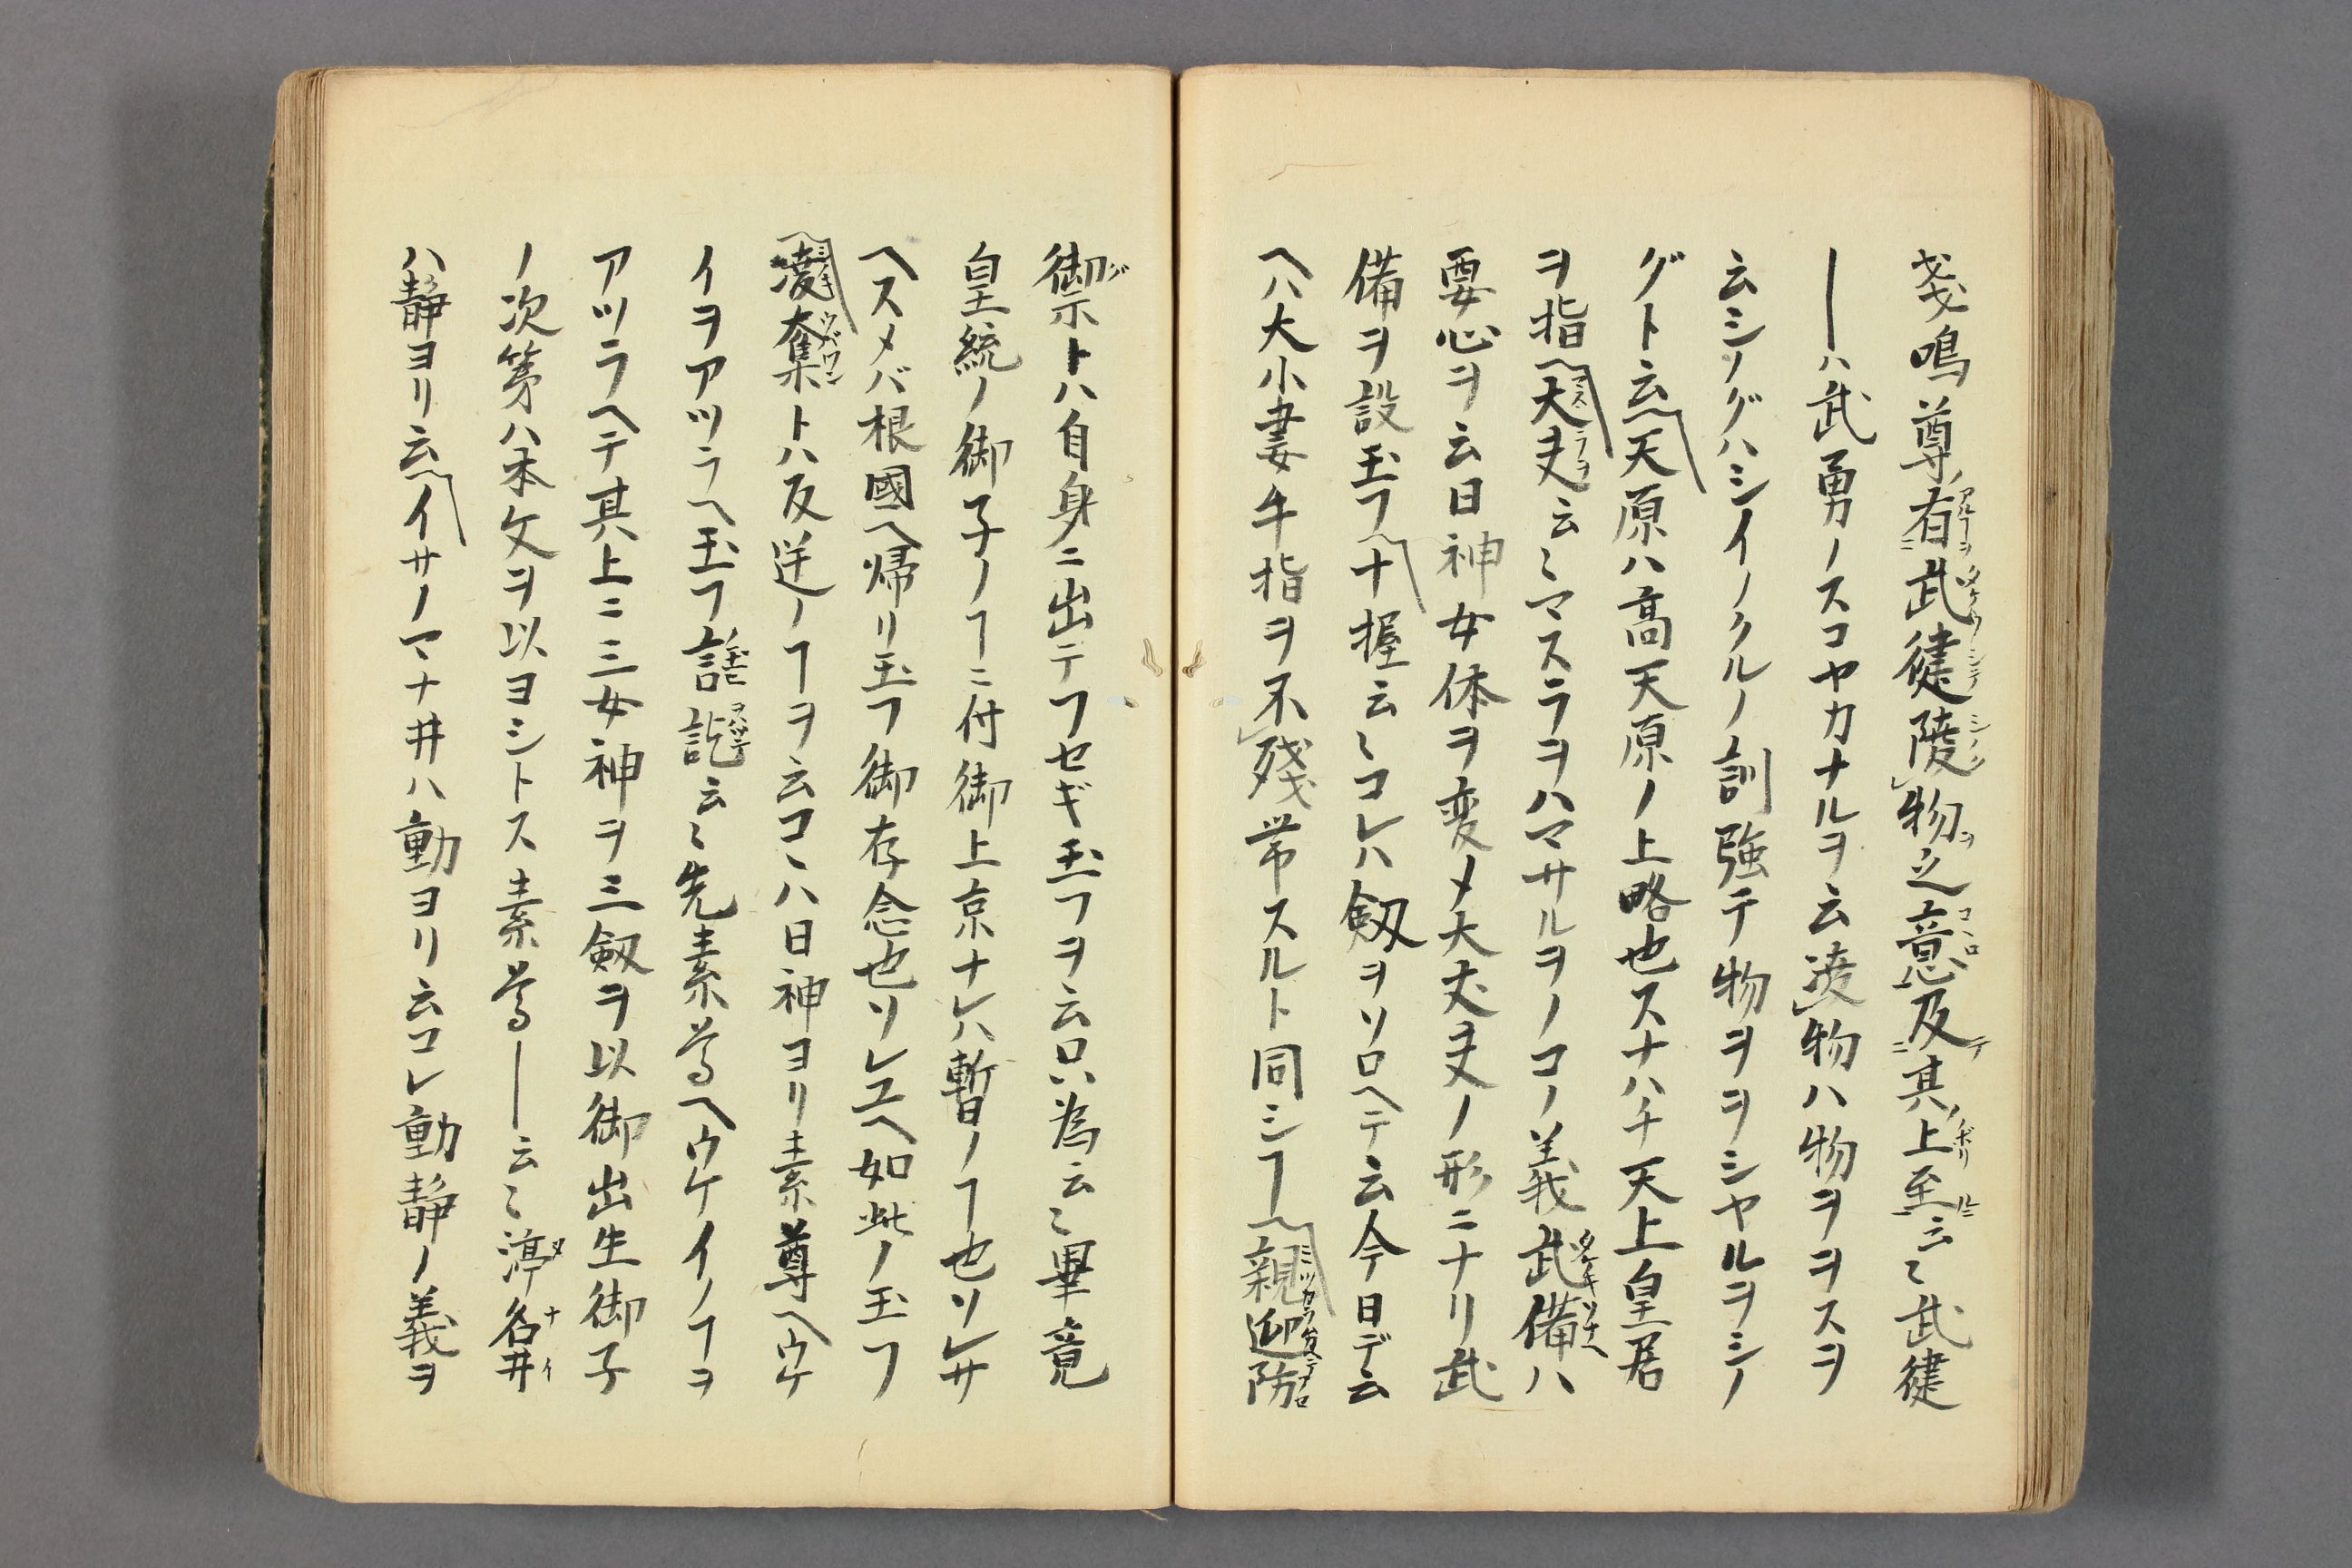 戔鳴尊有武健陵物之意及其上至云〻武健
――ハ武勇ノスコヤカナルヲ云凌物ハ物ヲヲスヲ
云シノグハシイノクルノ訓強テ物ヲヲシヤルヲシノ
グト云天原ハ高天原ノ上略也スナハチ天上皇居
ヲ指大丈夫云〻マスラヲハマサルヲノコノ義武備ハ
要心ヲ云日神女体ヲ変メ大丈夫ノ形ニナリ武
備ヲ設玉フ十握云〻コレハ劔ヲソロヘテ云今日デ云
ヘハ大小妻手指ヲ不残帯スルト同シヿ親迎防
御トハ自身ニ出テフセギ玉フヲ云只為云〻畢竟
皇統ノ御子ノヿニ付御上京ナレハ暫ノヿ也ソレサ
ヘスメバ根國ヘ帰リ玉フ御存念也ソレユヘ如此ノ玉フ
凌奪トハ反逆ノヿヲ云コヽハ日神ヨリ素尊ヘウケ
イヲアツラヘ玉フ誥訖云〻先素尊ヘウケイノヿヲ
アツラヘテ其上ニ三女神ヲ三劔ヲ以御出生御子
ノ次第ハ本文ヲ以ヨシトス素尊――云〻渟名井
ハ静ヨリ云イサノマナ井ハ動ヨリ云コレ動静ノ義ヲ